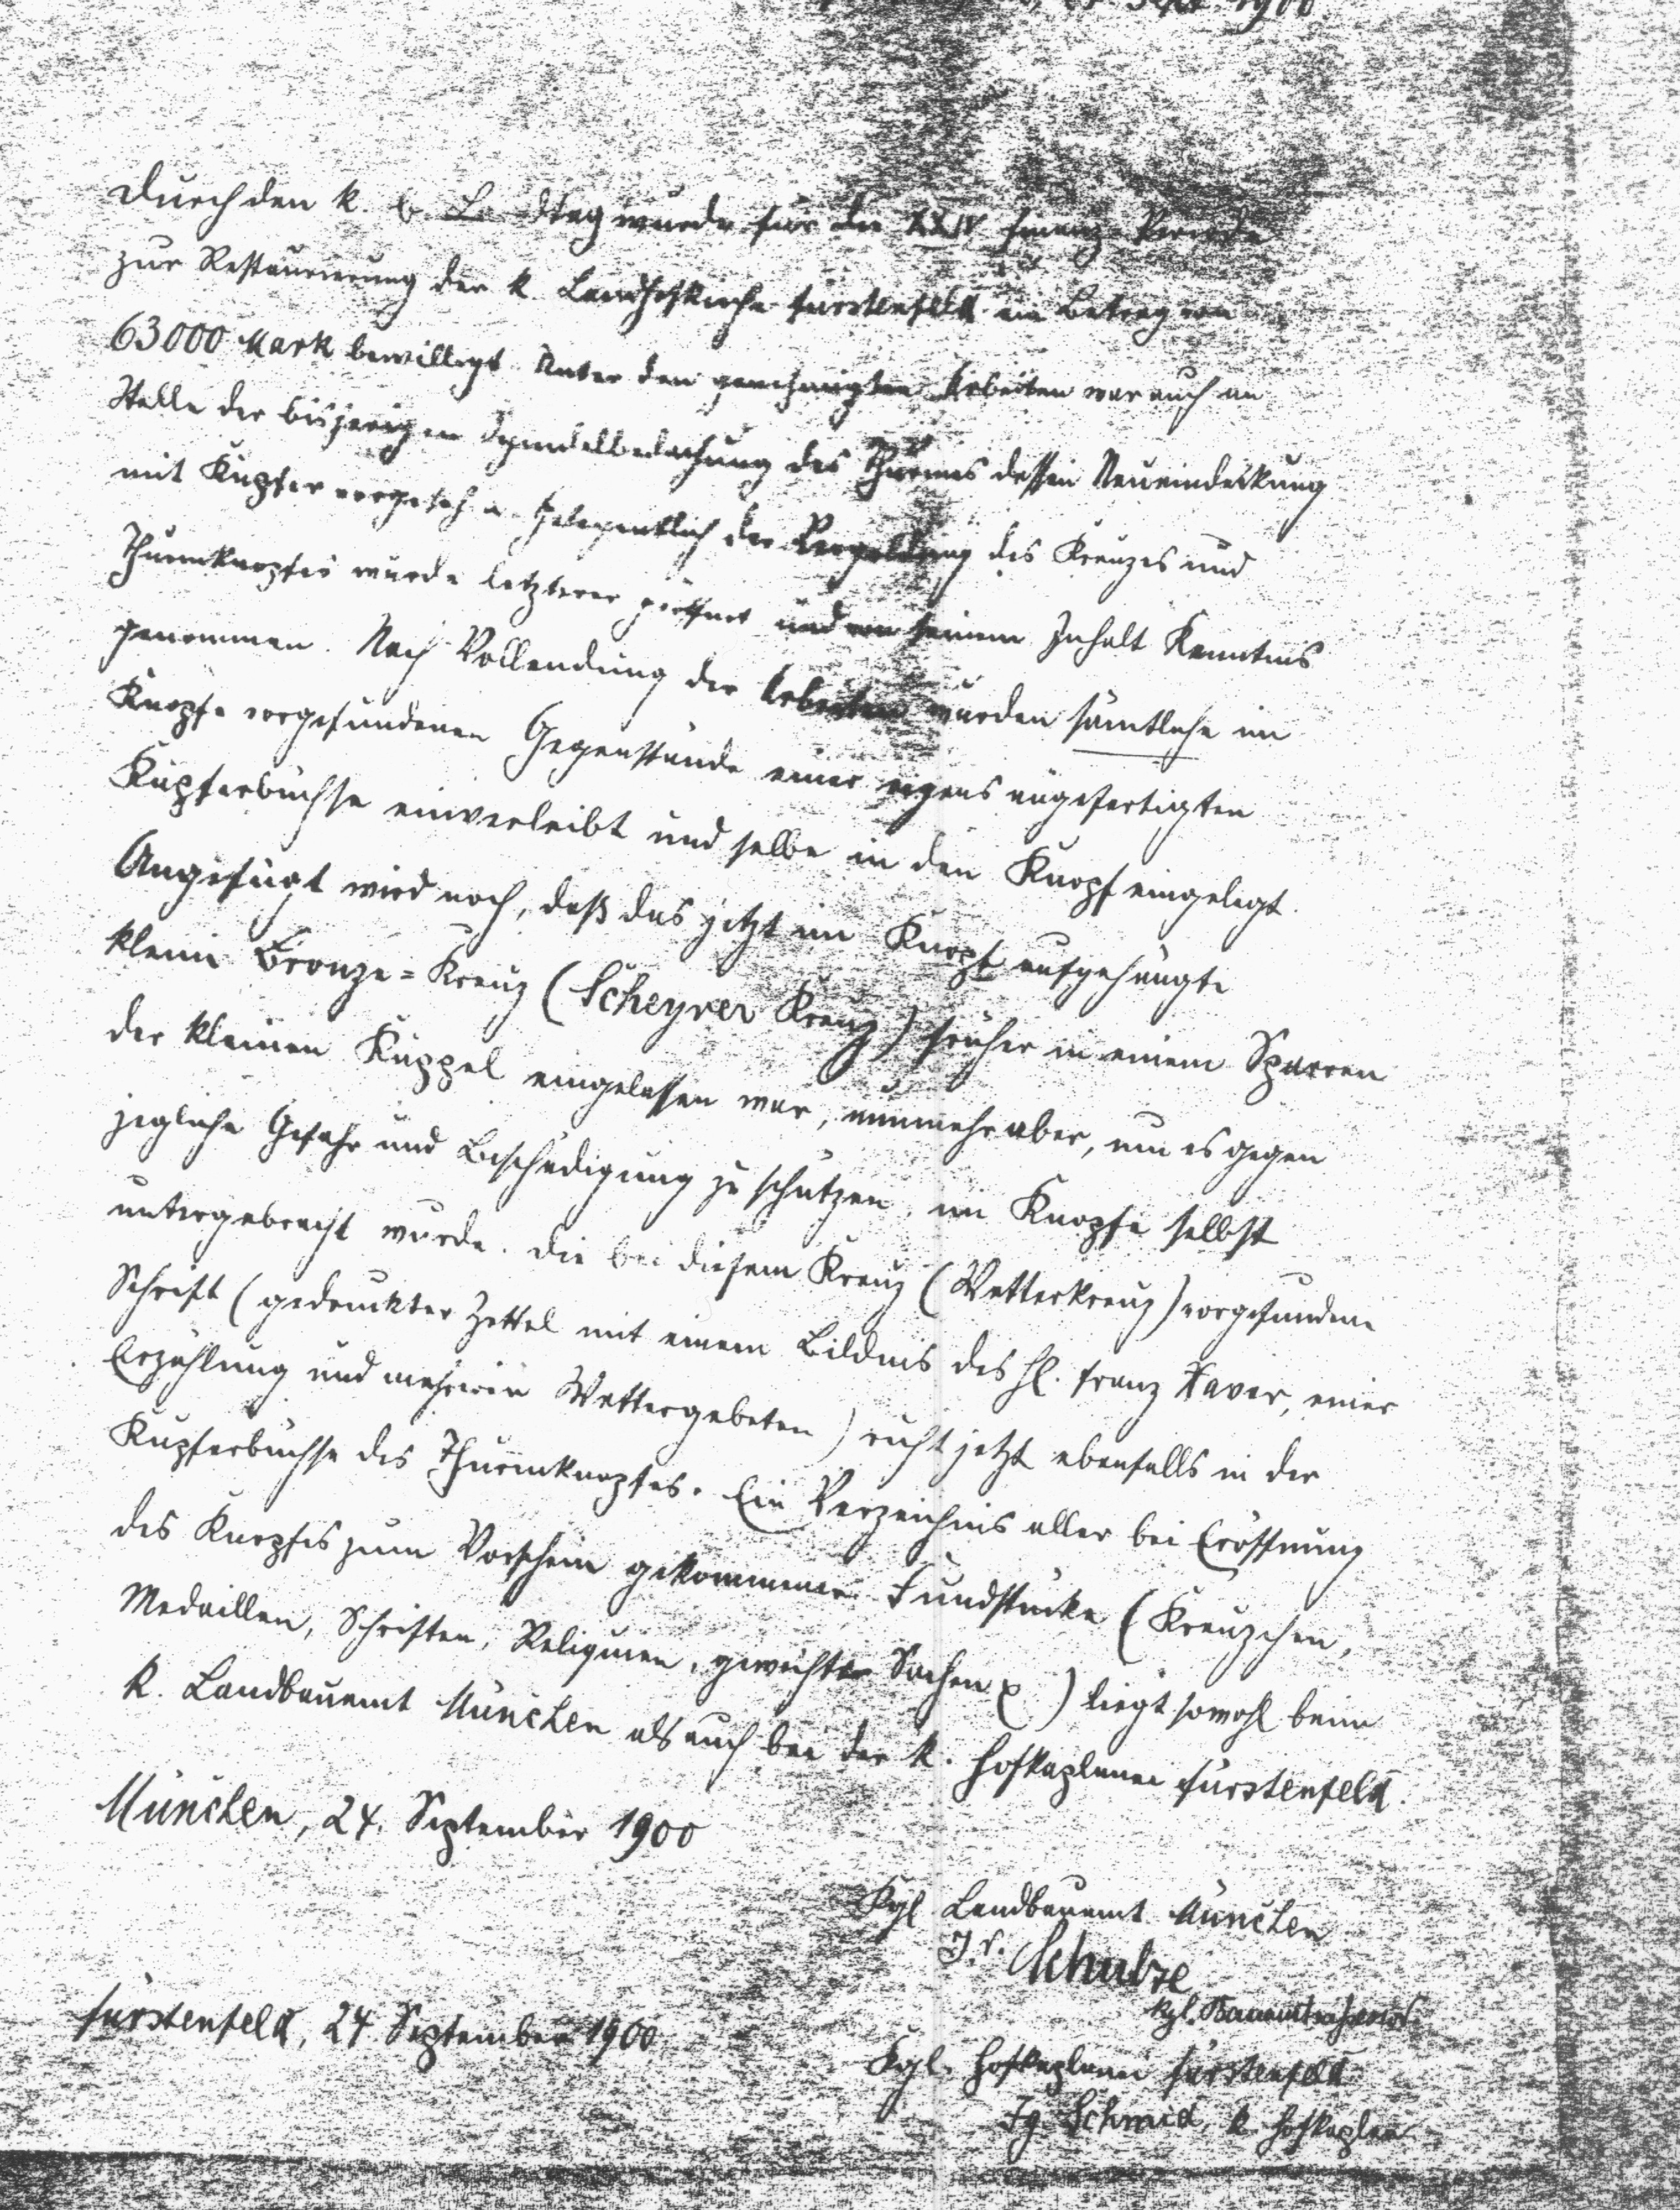 Sept. 1900
Durch den k. b. Landtag wurde für die XXIV Finanz-Periode
zur Restaurierung der k. Landhofkirche Fürstenfeld ein Betrag von
63000 Mark bewilligt. Unter den genehmigten Arbeiten war auch an
Stelle der bisherigen Schindelbedachung des Thurmes dessen Neueindeckung
mit Kupfer vorgesehen. Gelegentlich der Vergoldung des Kreuzes und
Thurmknopfes wurde letzterer geöffnet und von seinem Inhalt Kenntnis
genommen. Nach Vollendung der Arbeiten wurden sämtliche im
Knopfe vorgefundenen Gegenstände einer eigens angefertigten
Kupferbüchse einverleibt und selbe in den Knopf eingelegt.
Angefügt wird noch, daß das jetzt im Knopf aufgehängte
kleine Bronze=Kreuz (Scheyrer Kreuz) früher in einem Sparren
der kleinen Kuppel eingelassen war, nunmehr aber, um es gegen
jegliche Gefahr und Beschädigung zu schützen, im Knopfe selbst
untergebracht wurde. Die bei diesem Kreuz (Wetterkreuz) vorgefundene
Schrift (gedruckter Zettel mit einem Bildnis des hl. Franz Xaver, einer
Erzählung und mehreren Wettergebeten) ruht jetzt ebenfalls in der
Kupferbüchse des Thurmknopfes. Ein Verzeichnis aller bei Eröffnung
des Knopfes zum Vorschein gekommener Fundstücke (Kreuzchen,
Medaillen, Schriften, Reliquien, geweihter Sachen ) liegt sowohl beim
k. Landbauamt München als auch bei der k. Hofkaplanei Fürstenfeld.
München, 24. September 1900
Kgl. Landbauamt München
J. V. Schulze
kgl. Bauamtsassessor
Fürstenfeld, 24. September 1900
Kgl. Hofkaplanei Fürstenfeld
Ig. Schmid, k. Hofkaplan